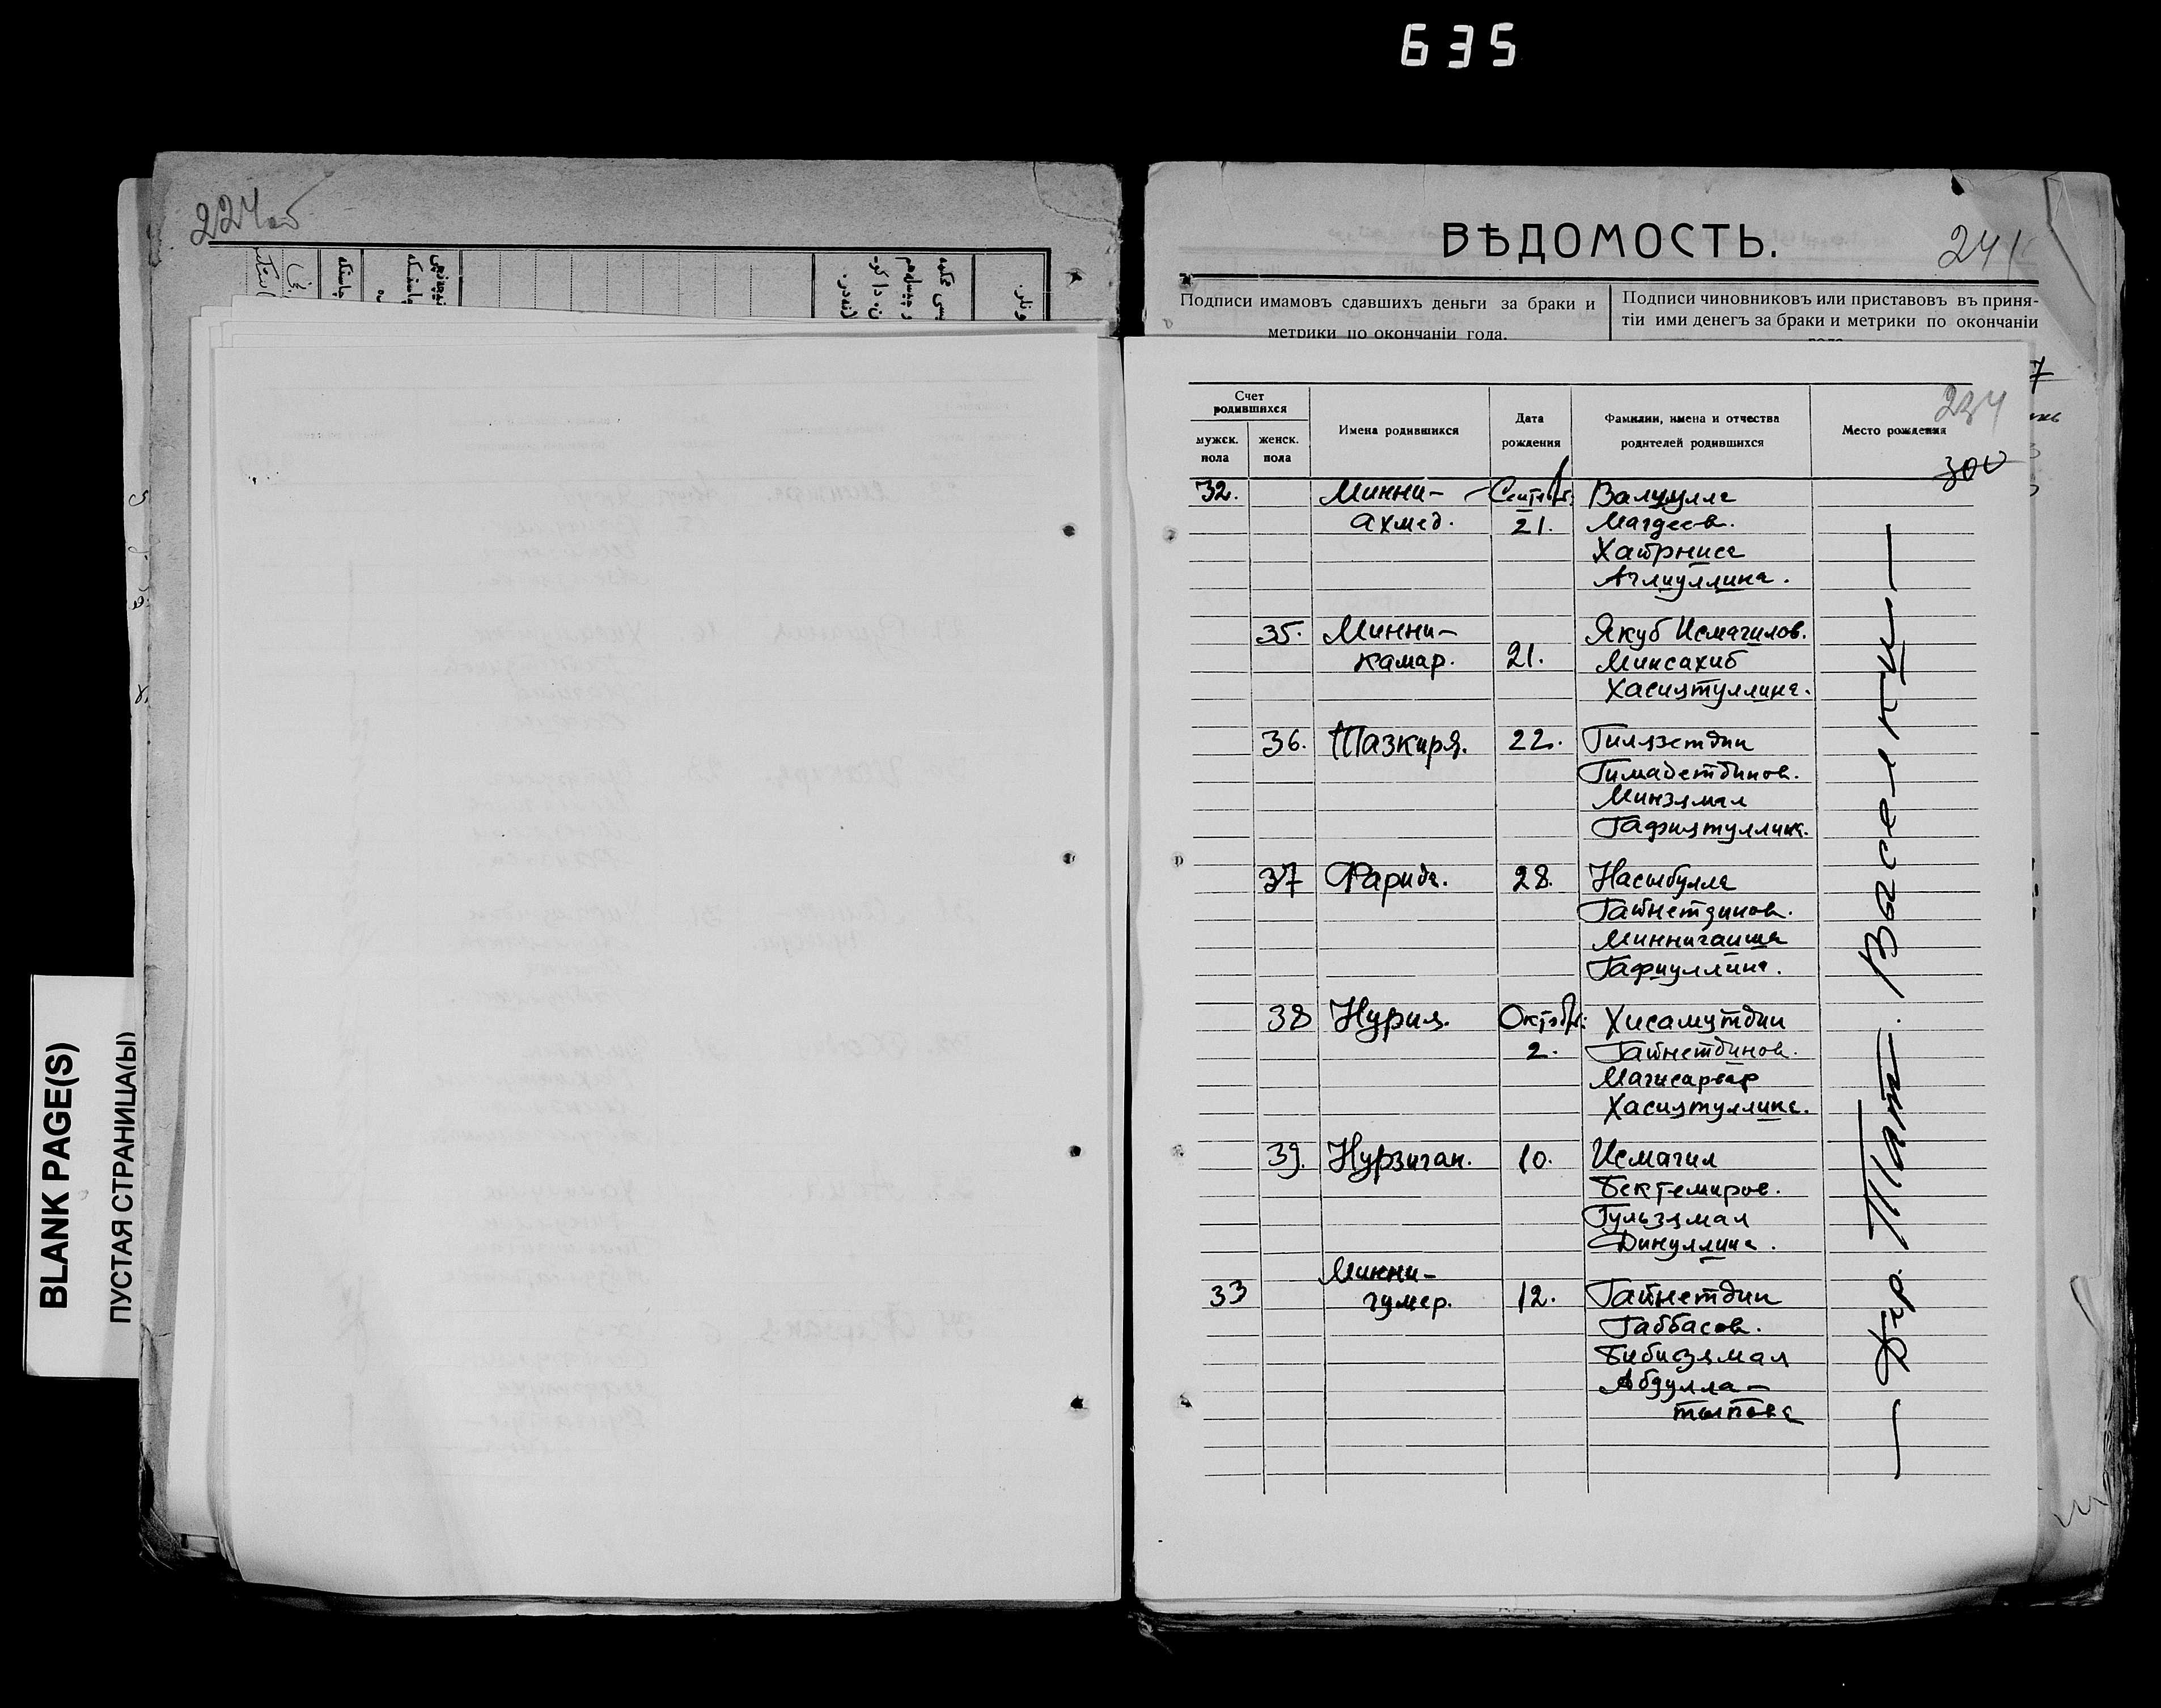 635
224об
ВѢДОМОСТЬ.
241
Подписи имамовъ сдавшихъ деньги за браки и
метрики по окончаніи года.
Подписи чиновниковъ или приставовъ въ приня-
тіи ими денегъ за браки и метрики по окончаніи
BLANK PAGE(S)
ПУСТАЯ СТРАНИЦА(Ы)
234
300
Счет
родившихся
мужск.
пола
женск.
пола
Имена родившихся
Дата
рождения
Фамилии, имена и отчества
родителей родившихся
Место рождения
32. Минни- Сентябр. Валиулла
Ахмед. 21. Магдеев.
Хатрниса
Аглиуллина.
35. Минни- Якуб Исмагилов.
камар. 21. Минсахиб
Хасиятуллина.
36. Тазкиря. 22. Гилязетдин
Гимадетдинов.
Минзямал
Гафиятуллина.
37 Фарида. 28. Насибулла
Гайнетдинов.
Миннигаиша
Гафиуллина.
38 Нурия. Октябр. Хисамутдин
2. Гайнетдинов.
Магисарвар
Хасиятуллина.
39. Нурзиган. 10. Исмагил
Бектемиров.
Гульзямал
Динуллина.
Минни-
33 гумер. 12. Гайнетдин
Габбасов.
Бибизямал
Абдулла-
типова
— Дер. Тат. Выселки —